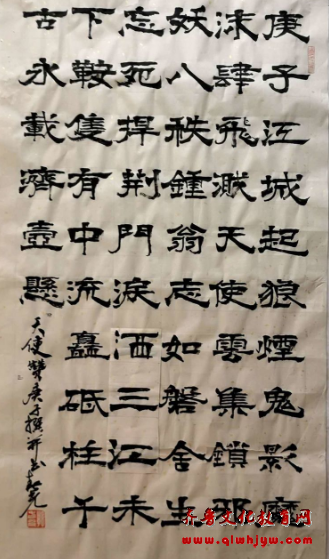 庚子江城起狼煙鬼影魔
沫肆飛濺天使雲集鎖邪
妖八秩鍾翁志如磐舍生
忘死捍荊門淚洒三江未
下鞍隻有中流矗砥柱千
古永載濟壺懸
天使贊庚子撰并書
齊魯文化教育网
www.qlwhjyw.com